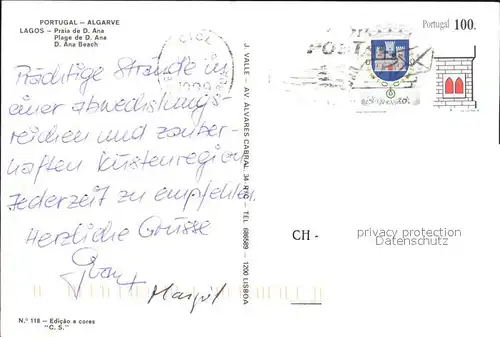 PORTUGAL – ALGARVE
LAGOS – Praia de D. Ana
Plage de D. Ana
D. Ana Beach
Prächtige Strände in
einer abwechslungs-
reichen und zauber-
haften Küstenregion
Jederzeit zu empfehlen.
Herzliche Grüsse
Margrit
N.º 118 – Edição a cores
"C. S."
J. VALLE - AV. ALVARES CABRAL, 34-R/C - TEL. 686589 - 1200 LISBOA
Portugal 100.
CH -
privacy protection
Datenschutz